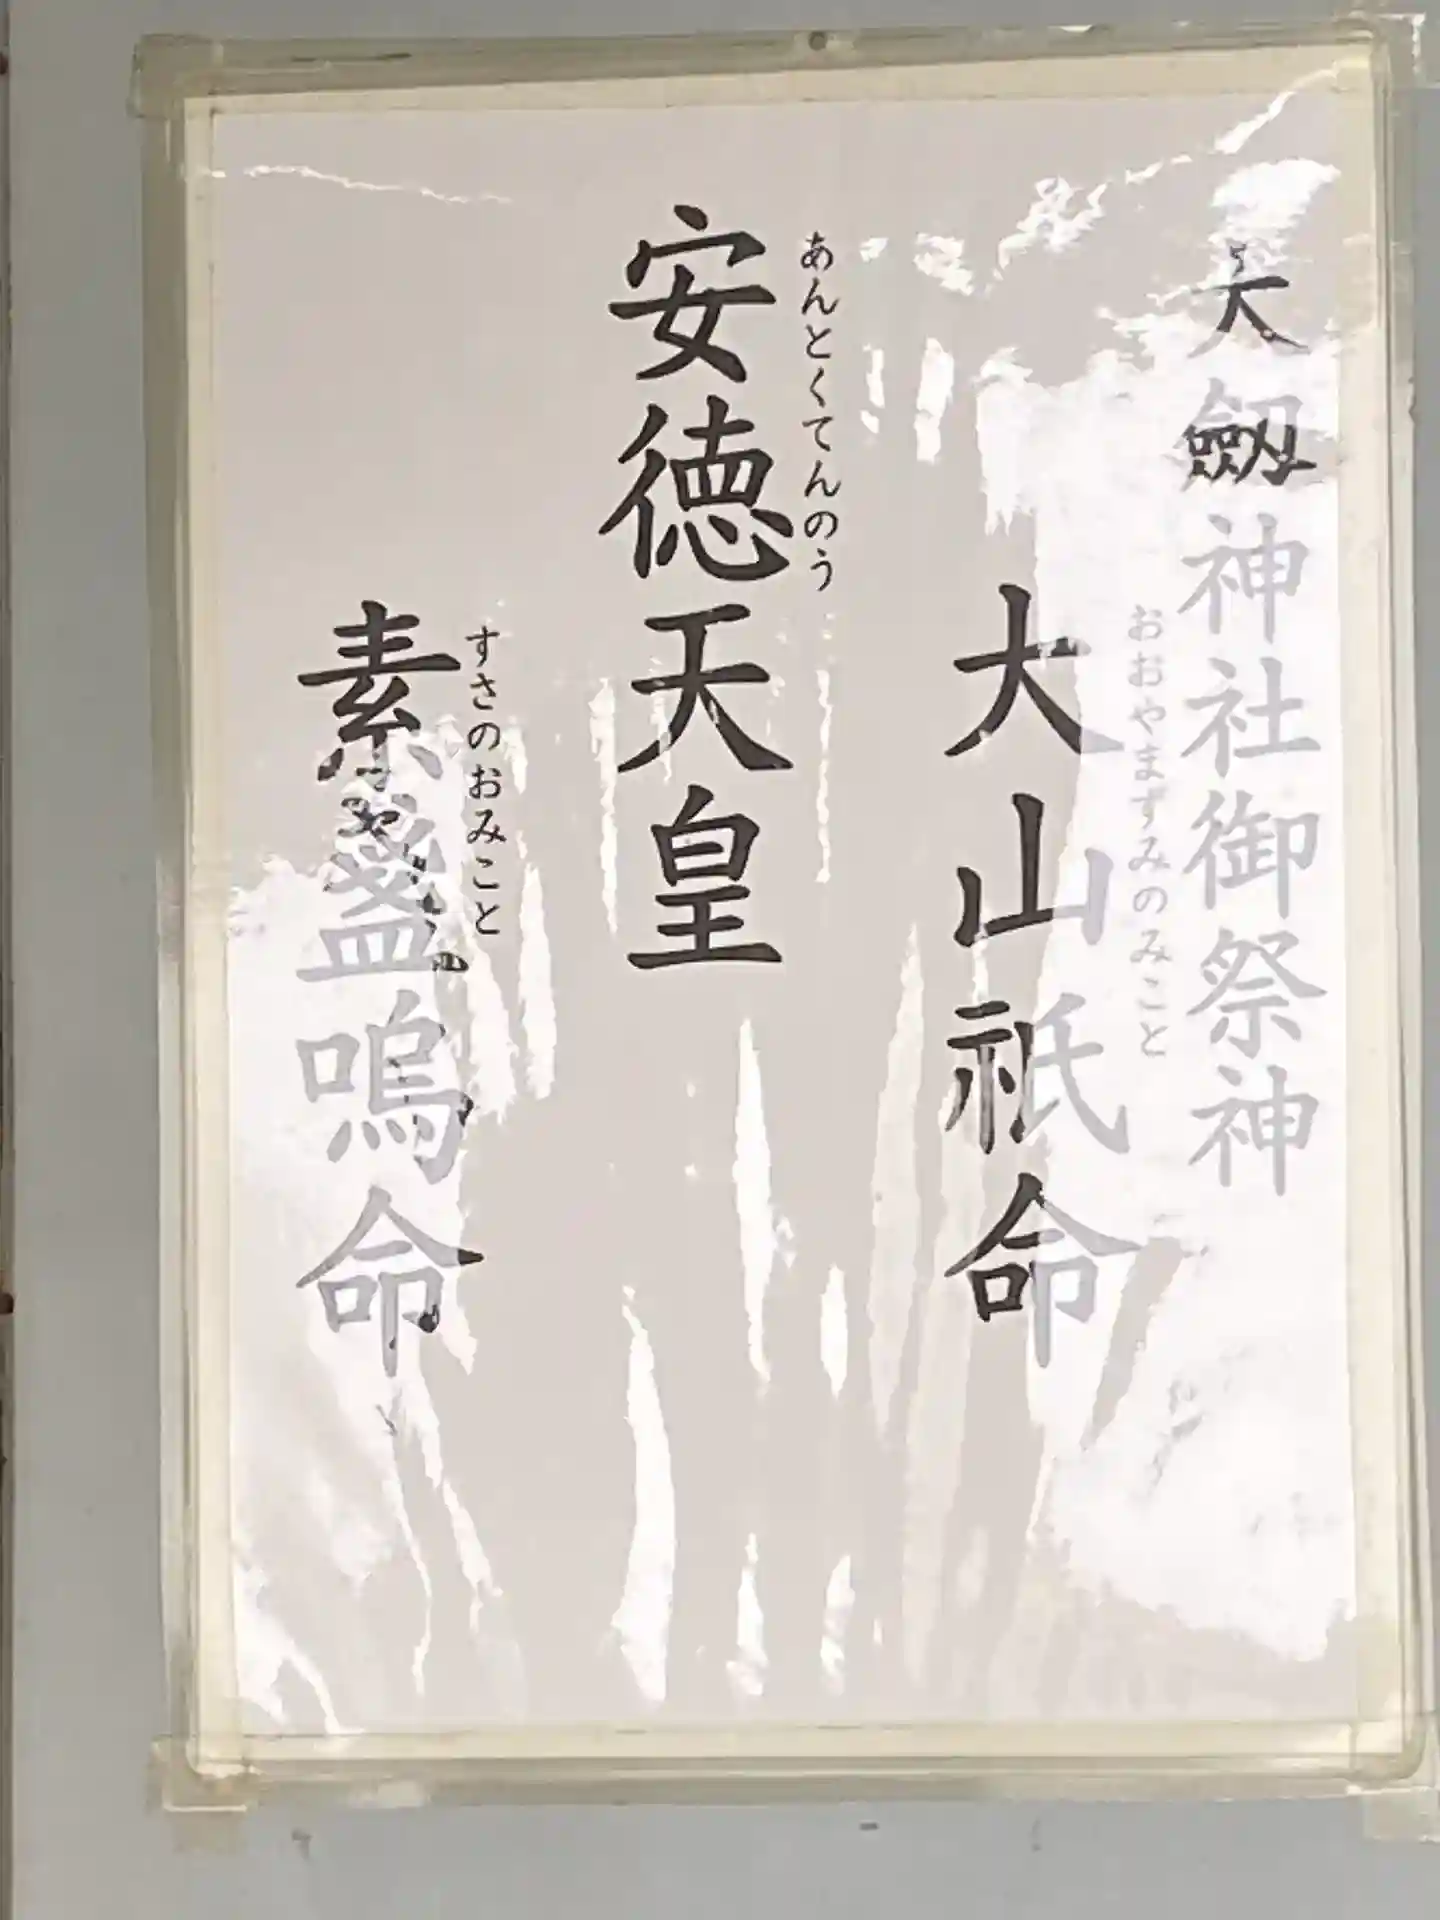 大劔神社御祭神
おおやまずみのみこと
大山祇命
あんとくてんのう
安徳天皇
すさのおみこと
素盞嗚命